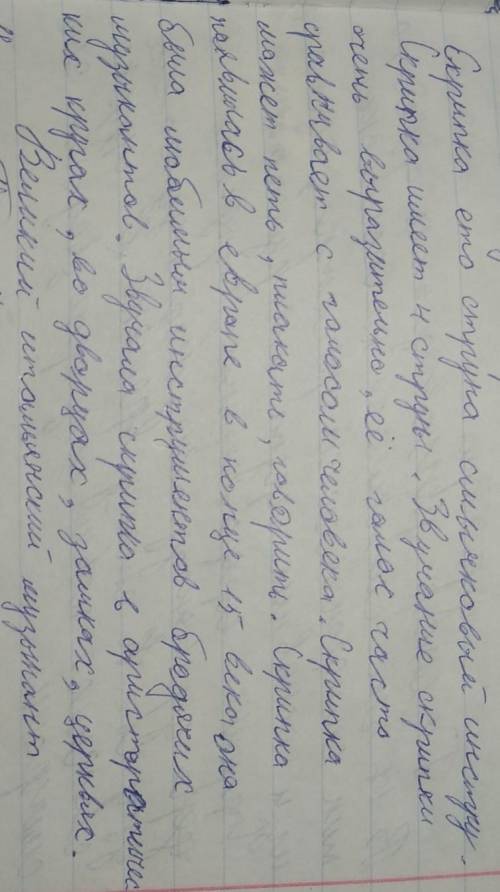 Скрипка ето струна смычковый инстру.
Скрипка имеет 4 струны. Звучание скрипки
очень выразительно, её голос часто
сравнивает с голосом человека. Скрипка
может петь, плакать, говорить. Скрипка
появилась в европе в конце 15 века, она
была любимым инструментов бродячих
музыкантов. Звучала скрипка в аристаратичес
ких кругах, во дворцах, замках, церквях.
Великий итальянский музыкант